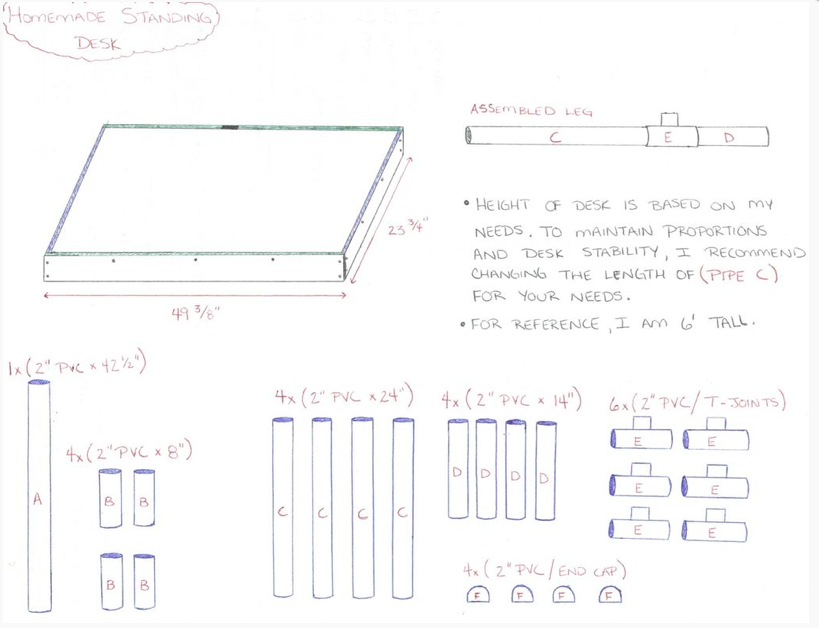 HOMEMADE STANDING
DESK
ASSEMBLED LEG
C E D
23 3/4"
49 3/8"
• HEIGHT OF DESK IS BASED ON MY
NEEDS. TO MAINTAIN PROPORTIONS
AND DESK STABILITY, I RECOMMEND
CHANGING THE LENGTH OF (PIPE C)
FOR YOUR NEEDS.
• FOR REFERENCE, I AM 6' TALL.
1x (2" PVC x 42 1/2")
A
4x (2" PVC x 8")
B B
B B
4x (2" PVC x 24")
C C C C
4x (2" PVC x 14")
D D D D
6x (2" PVC/T-JOINTS)
E E
E E
E E
4x (2" PVC/END CAP)
F F F F